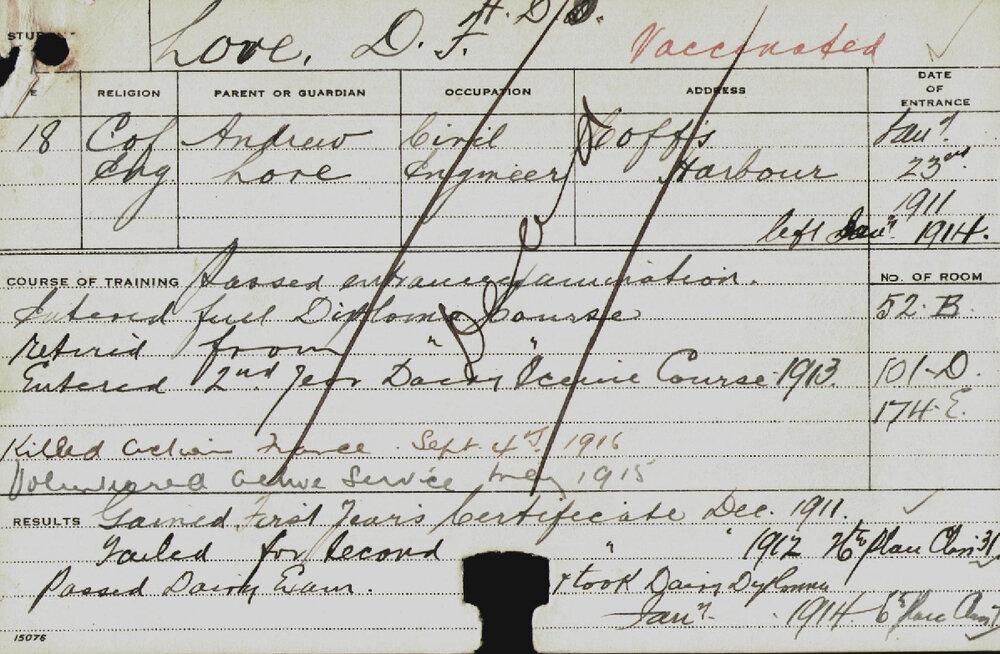 H.D.D.
STUD
Love, D. F. Vaccinated
E RELIGION PARENT OR GUARDIAN OCCUPATION ADDRESS DATE OF ENTRANCE
18 C of Andrew Civil Coff's Jany.
Eng Love Engineer Harbour 23rd
1911
left Jany 1914.
COURSE OF TRAINING Passed entrance examination. NO. OF ROOM
Entered full Diploma Course 52.B.
retired from " "
Entered 2nd Year Dairy Science Course 1913. 101-D.
174.E.
Dead
Killed action France. Sept. 4th 1916
Volunteered active Service May 1915
RESULTS Gained First Year's Certificate Dec. 1911.
Failed for Second " " 1912 26th Place Class 31
Passed Dairy Exam. & took Dairy Diploma
Jany. 1914 6th Place Class
15076